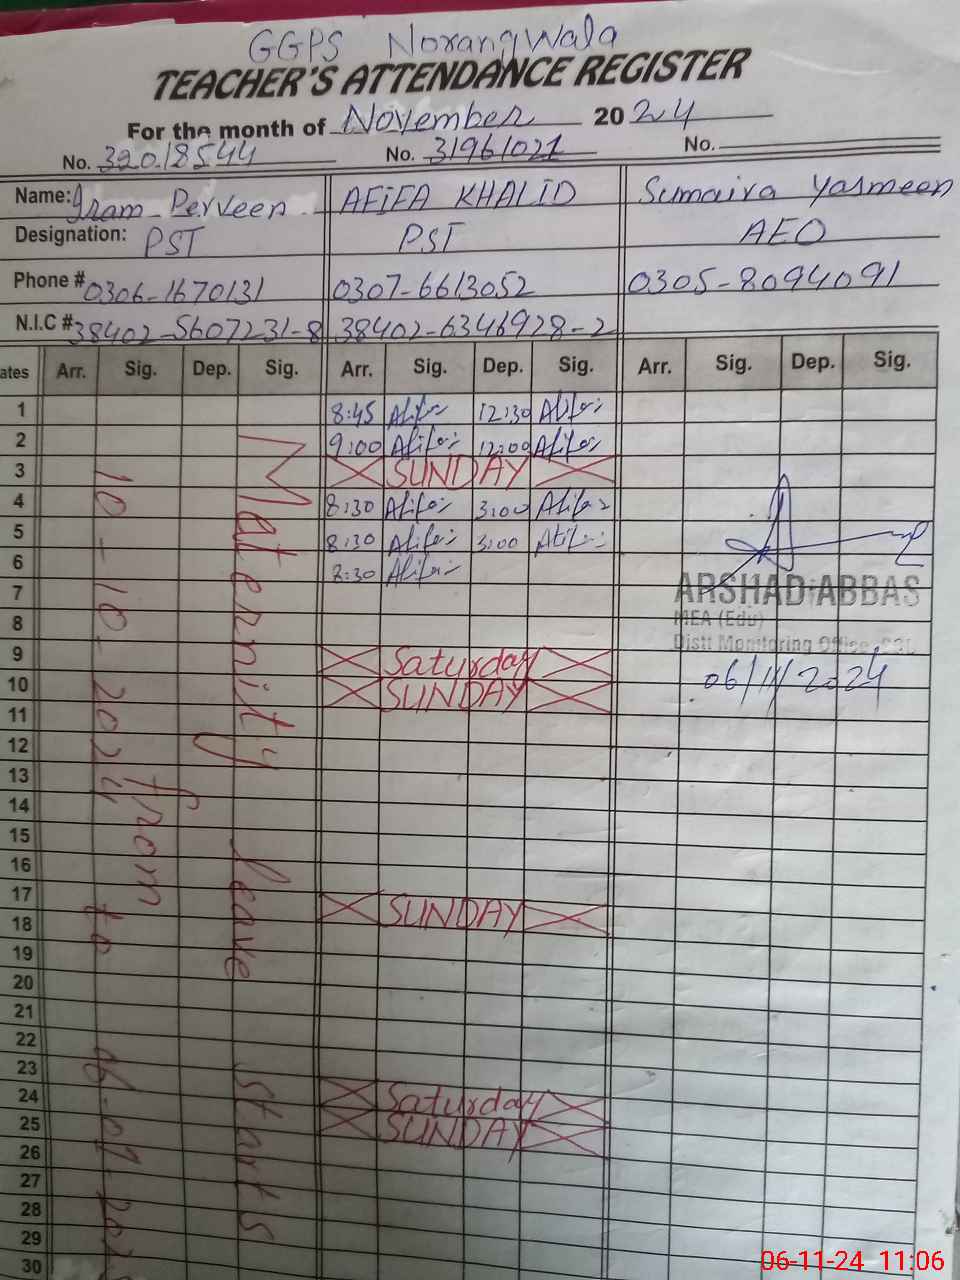 GGPS Norangwala
TEACHER'S ATTENDANCE REGISTER
For the month of November 2024
No. 32018544 No. 31961021 No.
Name: Iram Perveen AFIFA KHALID Sumaira Yasmeen
Designation: PST PST AEO
Phone # 0306-1670131 0307-6613052 0305-8094091
N.I.C # 38402-5607231-8 38402-6346928-2
ates Arr. Sig. Dep. Sig. Arr. Sig. Dep. Sig. Arr. Sig. Dep. Sig.
1 8:45 Afifa 12:30 Afifa
2 9:00 Afifa 12:00 Afifa
3 SUNDAY
4 8:30 Afifa 3:00 Afifa
5 8:30 Afifa 3:00 Afifa
6 8:30 Afifa
7
8
9 Saturday
10 SUNDAY
11
12
13
14
15
16
17 SUNDAY
18
19
20
21
22
23
24 Saturday
25 SUNDAY
26
27
28
29
30
Maternity leave starts
from
10-10-2024 to
ARSHAD ABBAS
MEA (Edu)
Distt Monitoring Office
06/11/2024
06-11-24 11:06